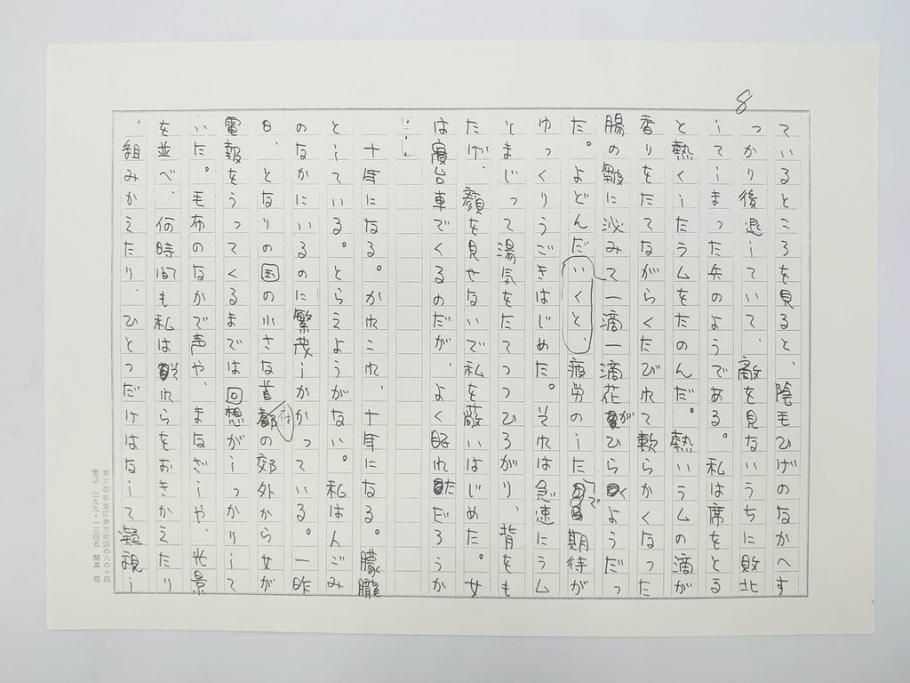 8
ているところを見ると、陰毛ひげのなかへす
っかり後退していて、敵を見ないうちに敗北
してしまった兵のようである。私は席をとる
と熱くしたラムをたのんだ。熱いラムの滴が
香りをたてながらくたびれて軟らかくなった
腸の皺に泌みて一滴一滴花がひらくようだっ
た。よどんだいくと、疲労のしたで期待が
ゆっくりうごきはじめた。それは急速にラム
とまじって湯気をたてつつひろがり、背をも
たげ、顔を見せないで私を蔽いはじめた。女
は寝台車でくるのだが、よく眠れただろうか
……
十年になる。かれこれ、十年になる。朦朧
としている。とらえようがない。私はんごみ
のなかにいるのに繁茂しかかっている。一昨
日、となりの国の小さな首都の郊外から女が
電報をうってくるまでは回想がしっかりして
いた。毛布のなかで声や、まなざしや、光景
を並べ、何時間も私はそれらをおきかえたり
、組みかえたり、ひとつだけはなして凝視し
東京都杉並区井草四の八の十四
電話 三九九・一三四五 開高 健